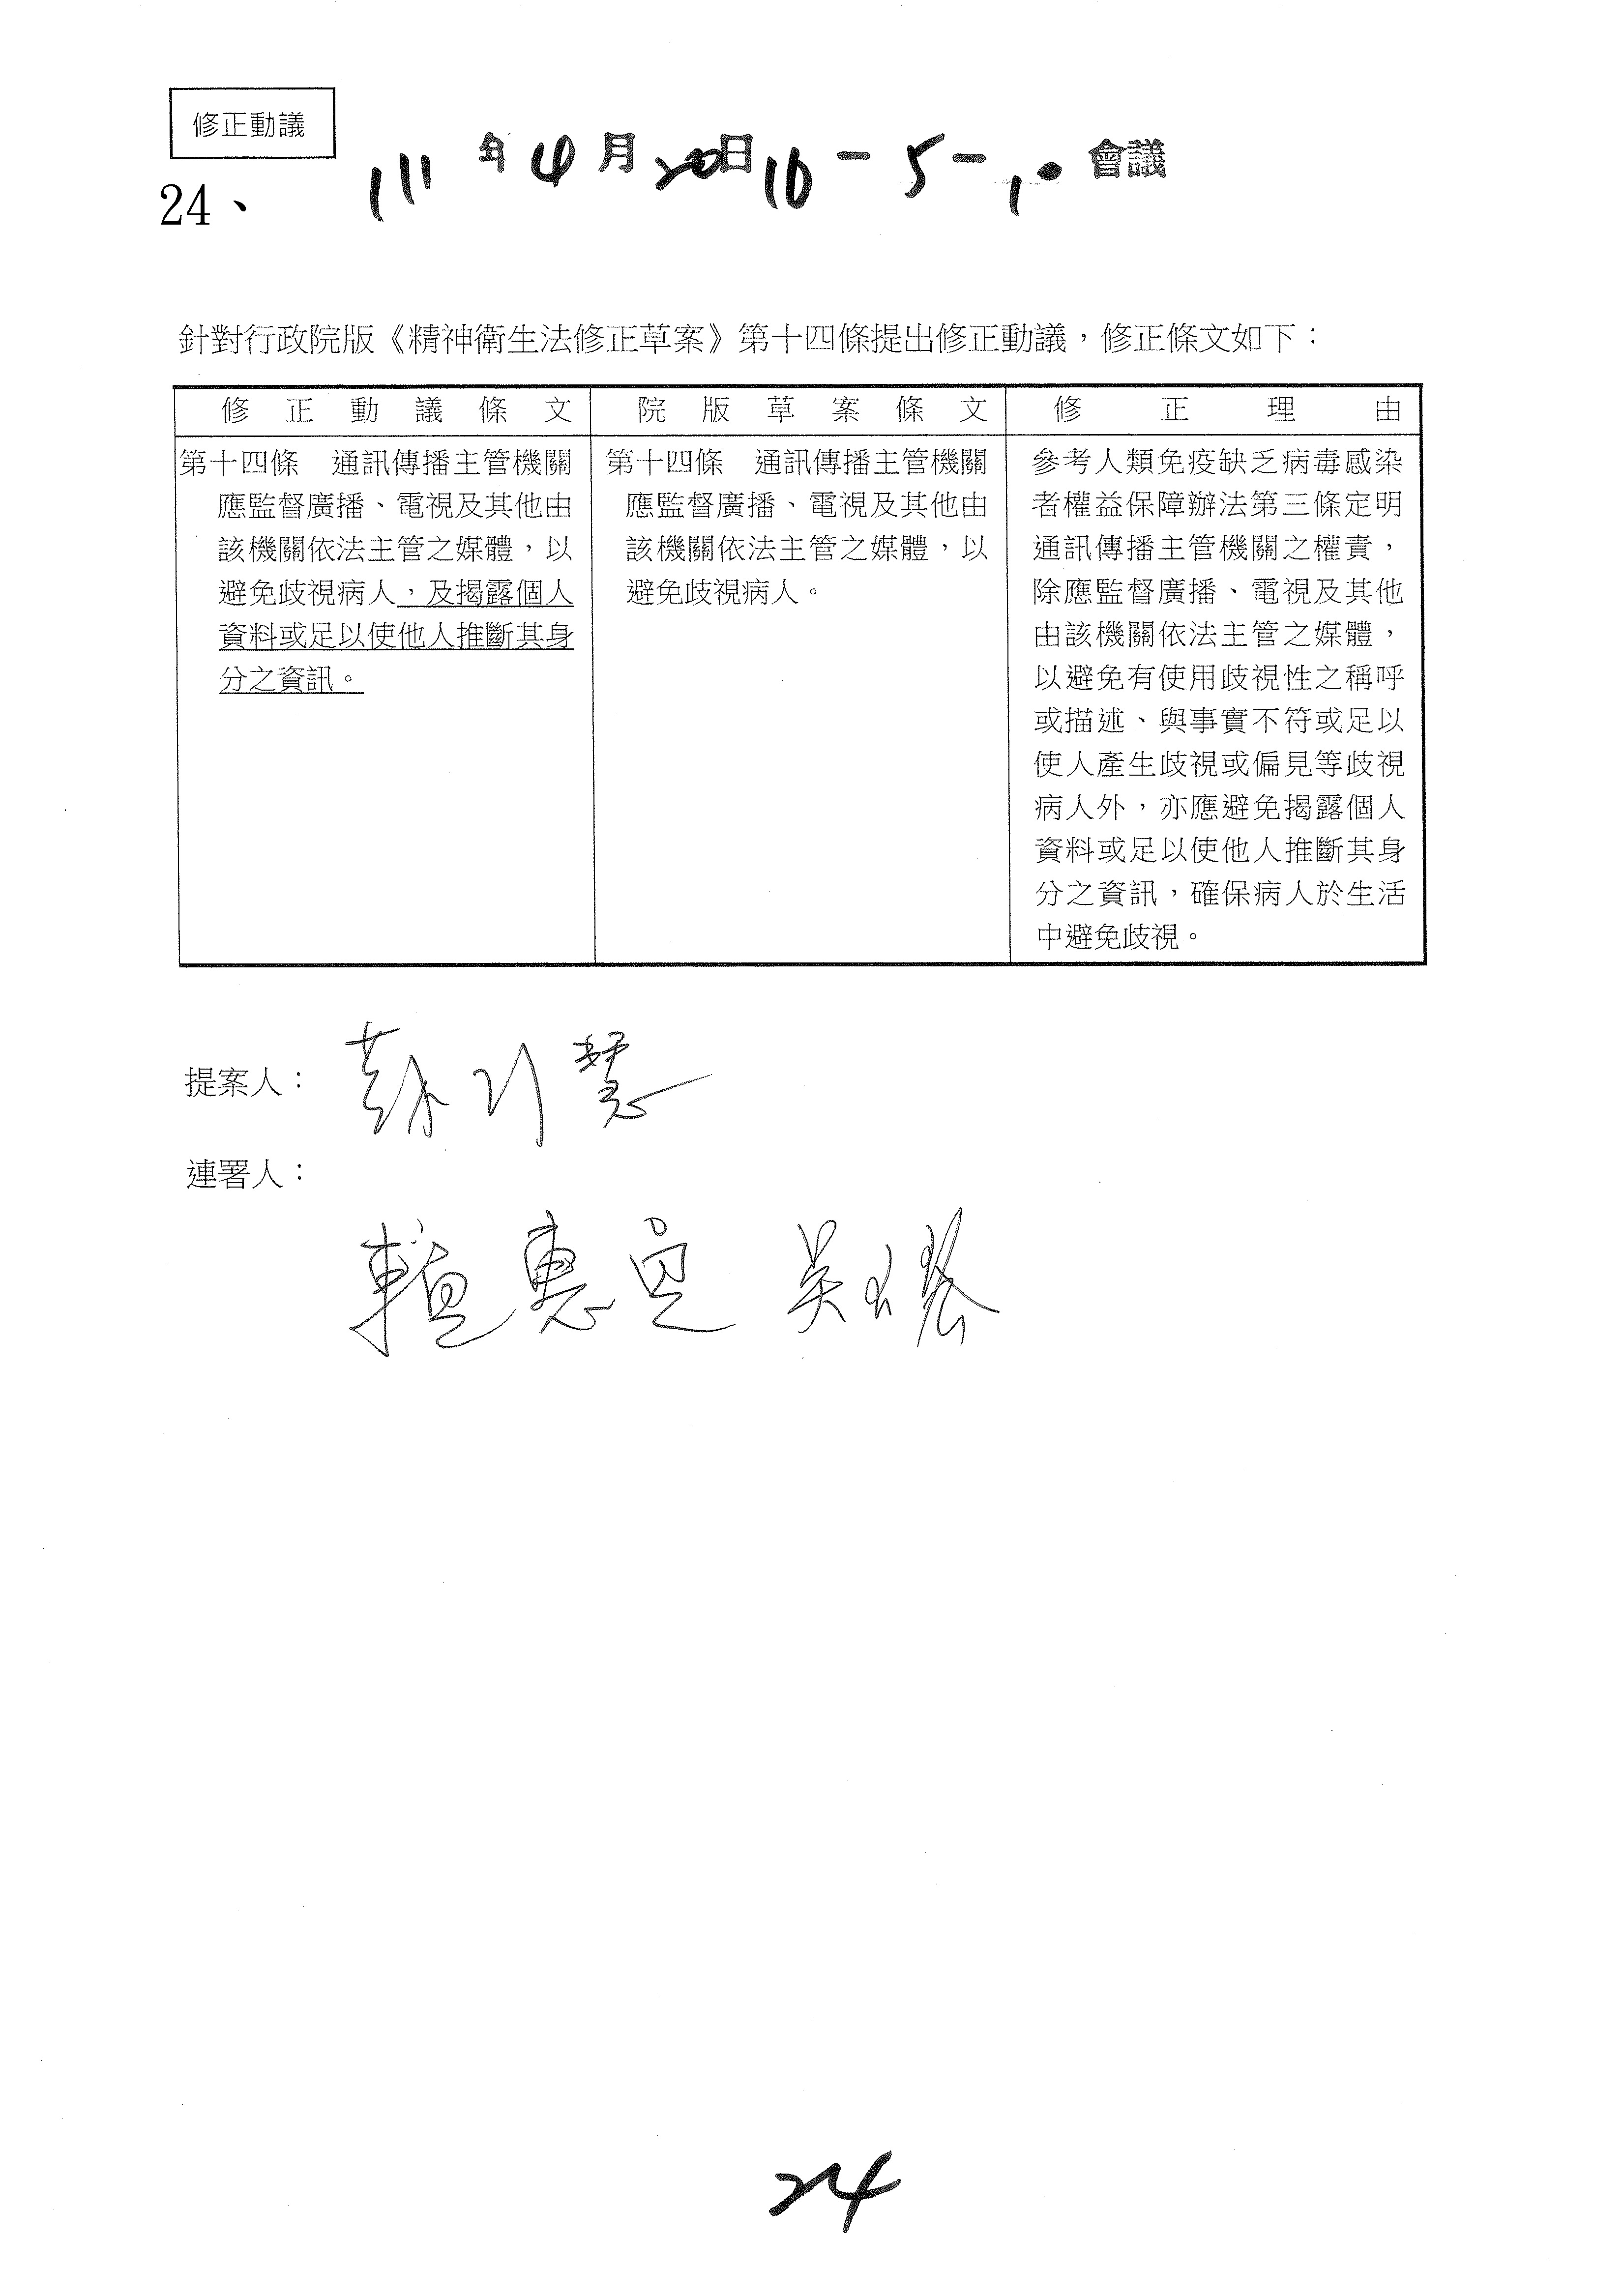 修正動議
111年4月20日10-5-10會議
24、
針對行政院版《精神衛生法修正草案》第十四條提出修正動議，修正條文如下：
修正動議條文
第十四條　通訊傳播主管機關
應監督廣播、電視及其他由
該機關依法主管之媒體，以
避免歧視病人，及揭露個人
資料或足以使他人推斷其身
分之資訊。
院版草案條文
第十四條　通訊傳播主管機關
應監督廣播、電視及其他由
該機關依法主管之媒體，以
避免歧視病人。
修正理由
參考人類免疫缺乏病毒感染
者權益保障辦法第三條定明
通訊傳播主管機關之權責，
除應監督廣播、電視及其他
由該機關依法主管之媒體，
以避免有使用歧視性之稱呼
或描述、與事實不符或足以
使人產生歧視或偏見等歧視
病人外，亦應避免揭露個人
資料或足以使他人推斷其身
分之資訊，確保病人於生活
中避免歧視。
提案人：
連署人：
賴惠員
24